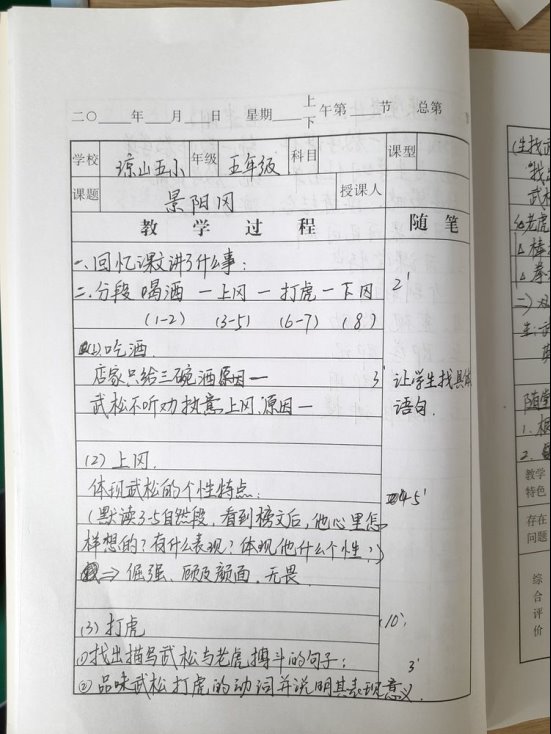 二〇 年 月 日 星期 上下 午第 节 总第
学校 琼山五小 年级 五年级 科目 课型
课题 景阳冈 授课人
教 学 过 程 随 笔
一、回忆课文讲了什么事:
二、分段 喝酒 — 上冈 — 打虎 — 下冈 2'
(1-2) (3-5) (6-7) (8)
(1) 吃酒.
店家只给三碗酒原因一 3' 让学生找具体
武松不听劝执意上冈.原因一 语句.
(2) 上冈.
体现武松的个性特点:
(默读3-5自然段,看到榜文后,他心里怎 4-5'
样想的?有什么表现?体现他什么个性?)
⇒ 倔强、顾及颜面,无畏.
(3) 打虎 10'
①找出描写武松与老虎搏斗的句子; 3'
②品味武松打虎的动词并说明其表现意义.
(生找
"找
武松
老虎
棒
拳
生:
随堂
1.
2.
教学
特色
存在
问题
综
合
评
价